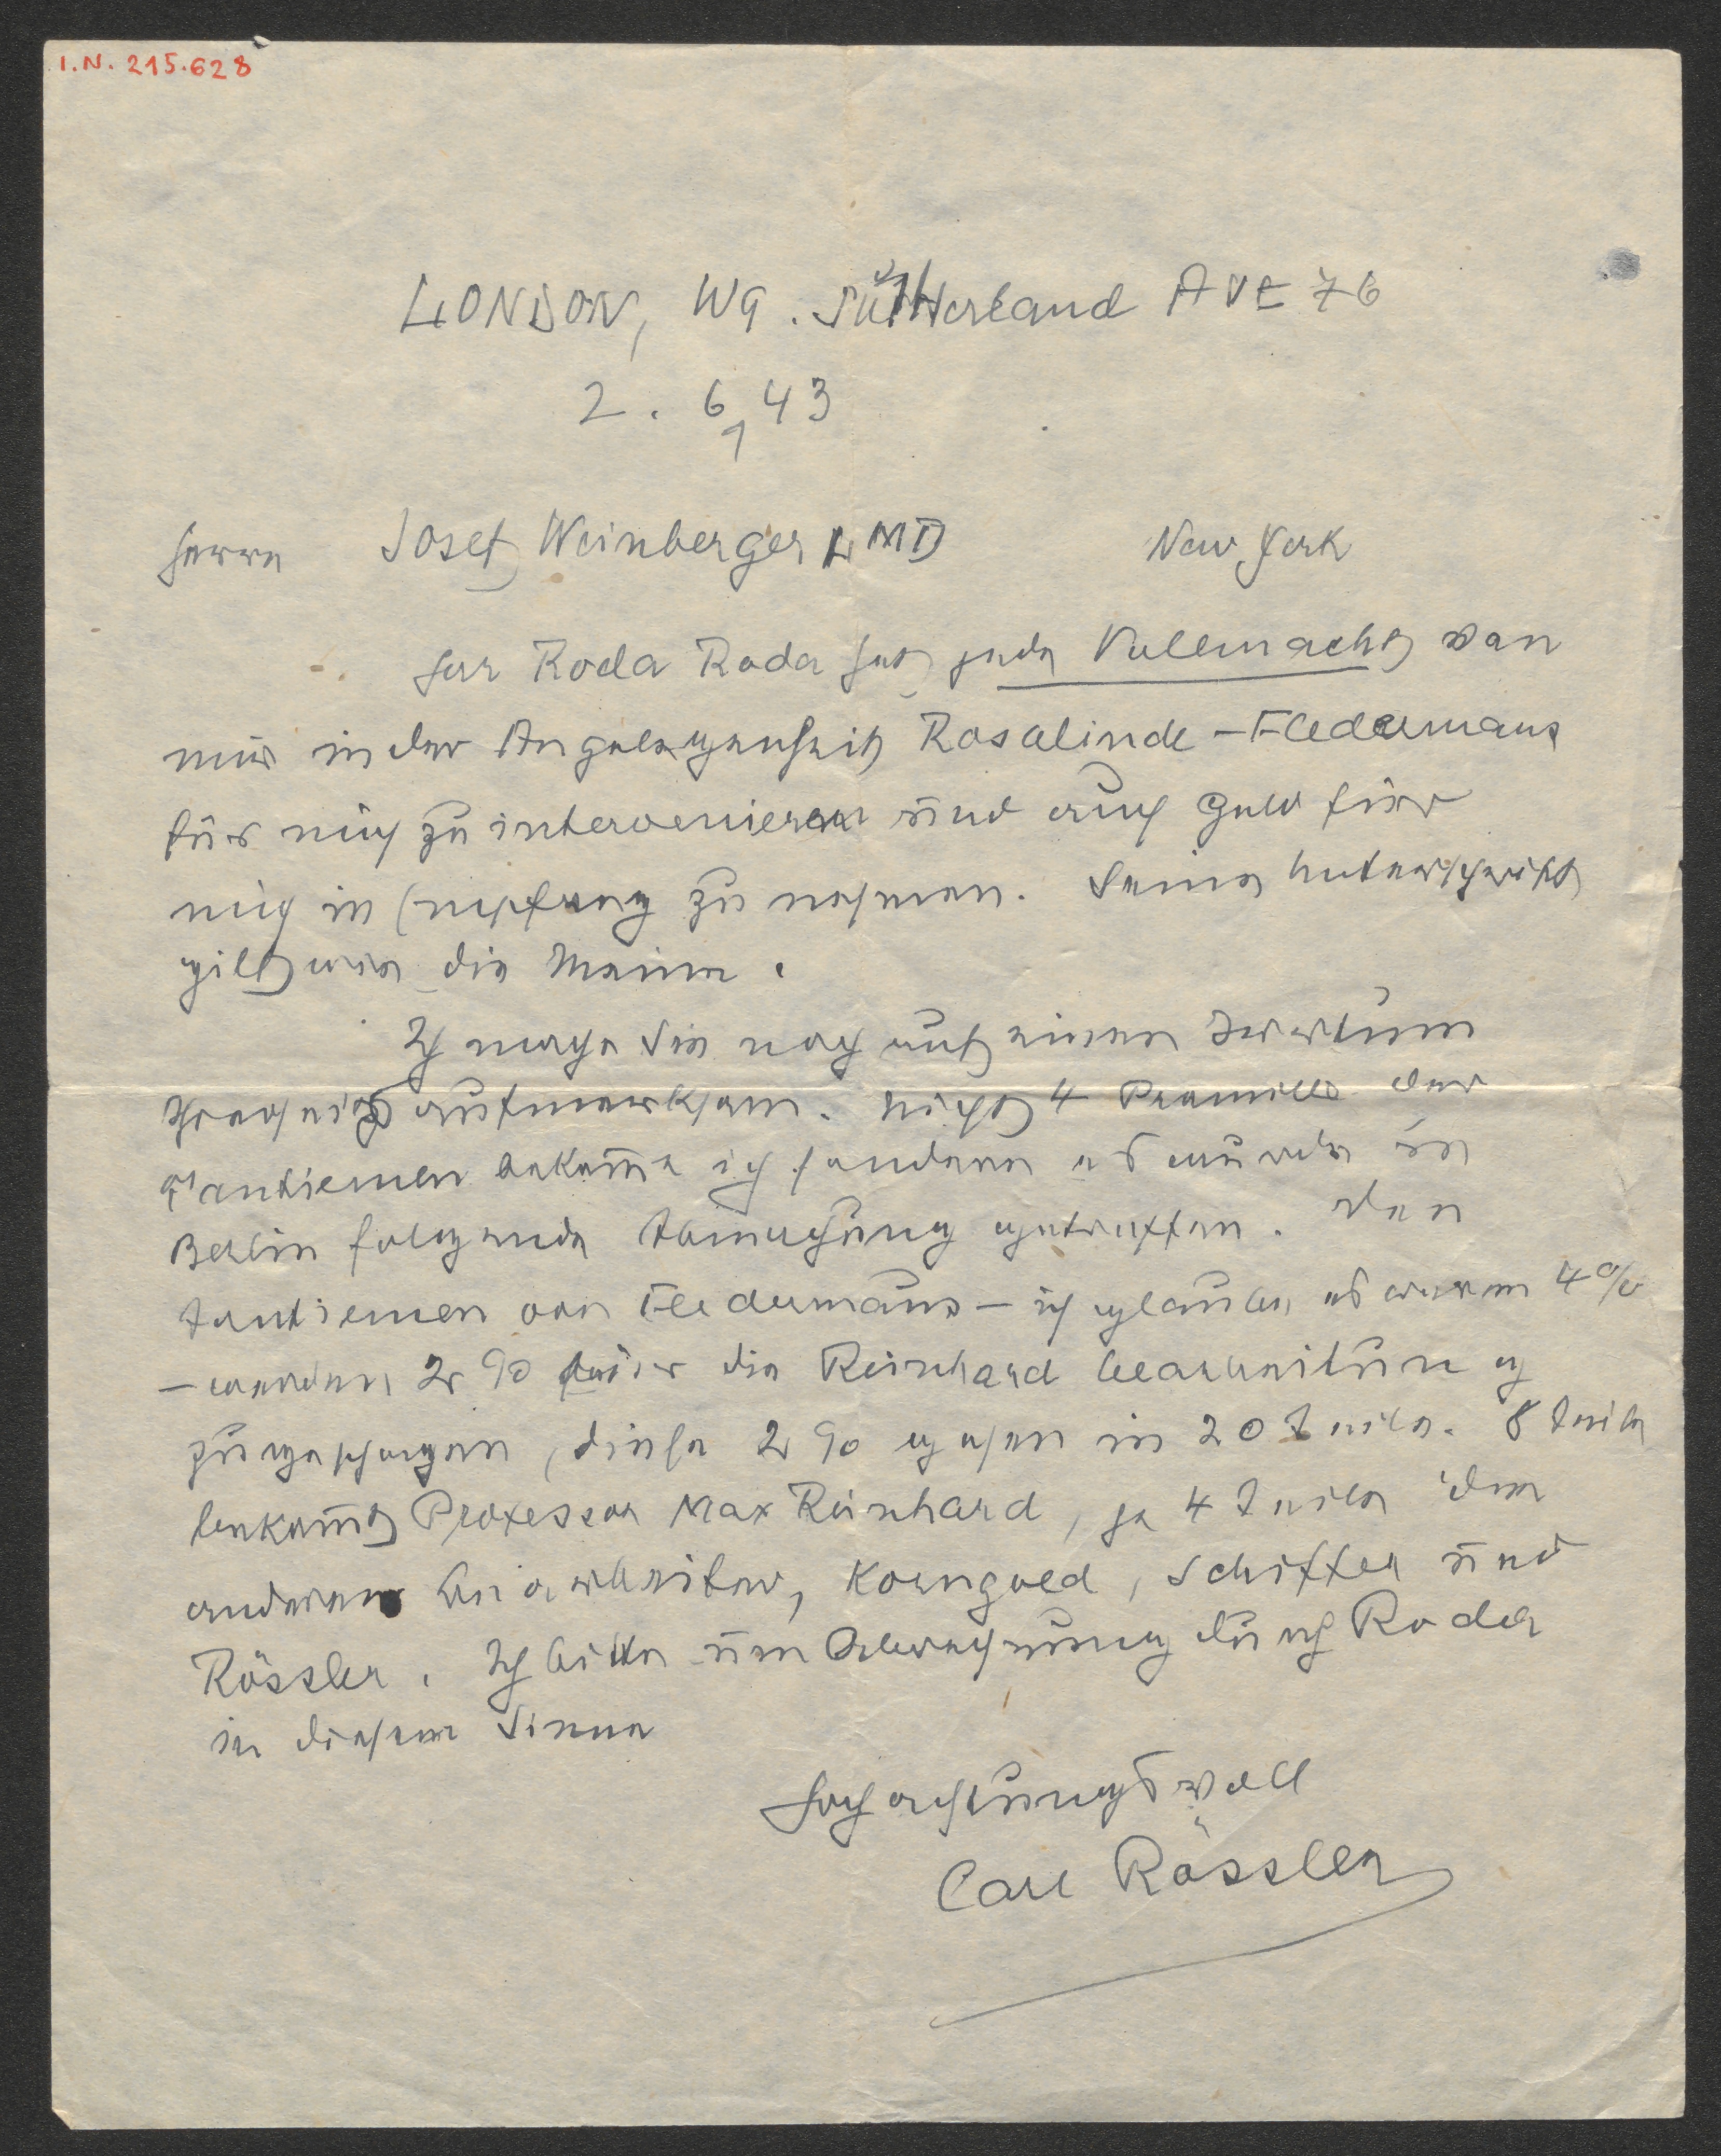 I.N. 215.628
LONDON, W9. Sutherland AVE 76
2. 6, 43
Herrn Josef Weinberger LMTD New York
Herr Roda Roda hat jede Vollmacht von
mir in der Angelegenheit Rosalinde – Fledermaus
für mich zu intervenieren und auch Geld für
mich in Empfang zu nehmen. Seine Unterschrift
gilt wie die Meine.
Ich mache Sie noch auf einen Irrtum
Ihrerseits aufmerksam. Nicht 4 Promille der
Tantiemen bekomme ich sondern es wurde in
Berlin folgende Abmachung getroffen. Den
Tantiemen von Fledermaus – ich glaube es waren 4%
– werden 2% für die Reinhard Bearbeitung
zugeschlagen, diese 2% gehen in 20 Teile. 8 Teile
bekommt Professor Max Reinhard, je 4 Teile den
anderen Bearbeiter, Korngold, Schiffer und
Rössler. Ich bitte um Abrechnung durch Roda
in diesem Sinne
Hochachtungsvoll
Carl Rössler